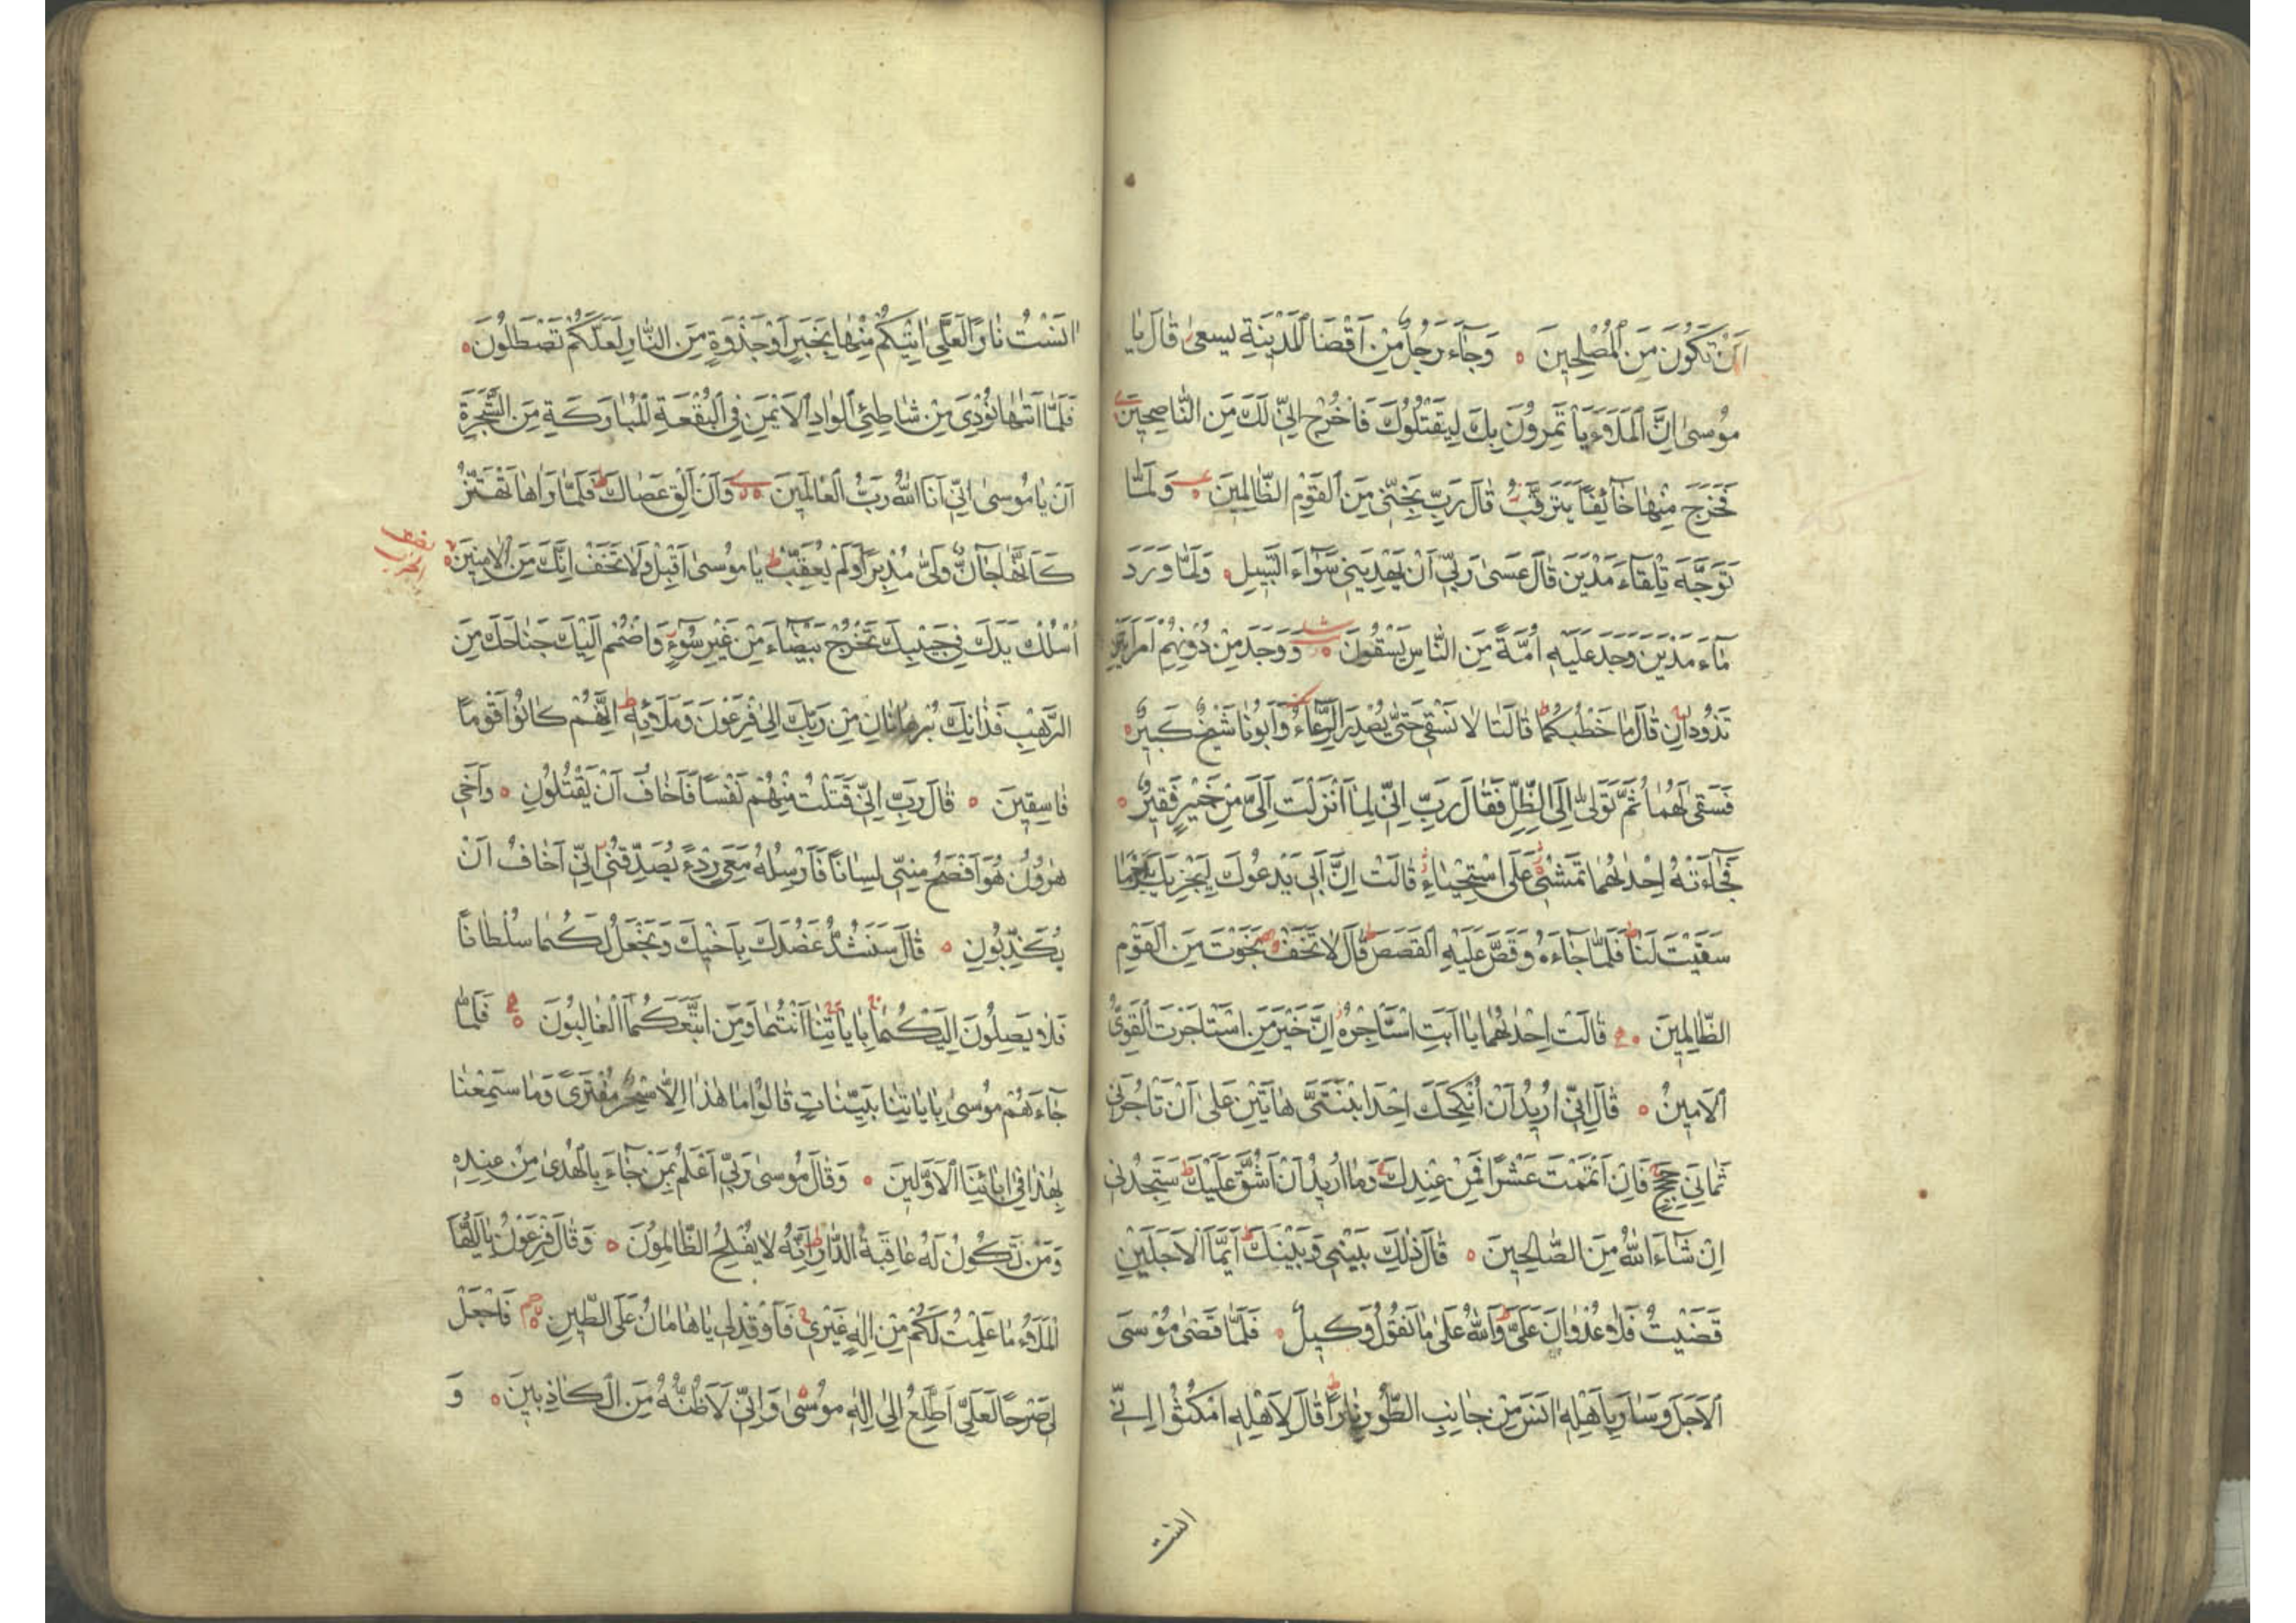 اَنْ تَكُونَ مِنَ الْمُصْلِحِينَ ۝ وَجَاءَ رَجُلٌ مِنْ اَقْصَا الْمَدِينَةِ يَسْعىٰ قَالَ يَا
مُوسىٰ اِنَّ الْمَلَاَ يَأْتَمِرُونَ بِكَ لِيَقْتُلُوكَ فَاخْرُجْ اِنِّي لَكَ مِنَ النَّاصِحِينَ
فَخَرَجَ مِنْهَا خَائِفًا يَتَرَقَّبُ قَالَ رَبِّ نَجِّنِي مِنَ الْقَوْمِ الظَّالِمِينَ ۝ وَلَمَّا
تَوَجَّهَ تِلْقَاءَ مَدْيَنَ قَالَ عَسىٰ رَبِّي اَنْ يَهْدِيَنِي سَوَاءَ السَّبِيلِ ۝ وَلَمَّا وَرَدَ
مَاءَ مَدْيَنَ وَجَدَ عَلَيْهِ اُمَّةً مِنَ النَّاسِ يَسْقُونَ ۝ وَوَجَدَ مِنْ دُونِهِمُ امْرَاَتَيْنِ
تَذُودَانِ قَالَ مَا خَطْبُكُمَا قَالَتَا لَا نَسْقِي حَتّٰى يُصْدِرَ الرِّعَاءُ وَاَبُونَا شَيْخٌ كَبِيرٌ ۝
فَسَقىٰ لَهُمَا ثُمَّ تَوَلّٰى اِلَى الظِّلِّ فَقَالَ رَبِّ اِنِّي لِمَا اَنْزَلْتَ اِلَيَّ مِنْ خَيْرٍ فَقِيرٌ ۝
فَجَاءَتْهُ اِحْدٰىهُمَا تَمْشِي عَلَى اسْتِحْيَاءٍ قَالَتْ اِنَّ اَبِي يَدْعُوكَ لِيَجْزِيَكَ اَجْرَ مَا
سَقَيْتَ لَنَا فَلَمَّا جَاءَهُ وَقَصَّ عَلَيْهِ الْقَصَصَ قَالَ لَا تَخَفْ نَجَوْتَ مِنَ الْقَوْمِ
الظَّالِمِينَ ۝ قَالَتْ اِحْدٰىهُمَا يَا اَبَتِ اسْتَأْجِرْهُ اِنَّ خَيْرَ مَنِ اسْتَأْجَرْتَ الْقَوِيُّ
الْاَمِينُ ۝ قَالَ اِنِّي اُرِيدُ اَنْ اُنْكِحَكَ اِحْدَى ابْنَتَيَّ هَاتَيْنِ عَلىٰ اَنْ تَأْجُرَنِي
ثَمَانِيَ حِجَجٍ فَاِنْ اَتْمَمْتَ عَشْرًا فَمِنْ عِنْدِكَ وَمَا اُرِيدُ اَنْ اَشُقَّ عَلَيْكَ سَتَجِدُنِي
اِنْ شَاءَ اللّٰهُ مِنَ الصَّالِحِينَ ۝ قَالَ ذٰلِكَ بَيْنِي وَبَيْنَكَ اَيَّمَا الْاَجَلَيْنِ
قَضَيْتُ فَلَا عُدْوَانَ عَلَيَّ وَاللّٰهُ عَلىٰ مَا نَقُولُ وَكِيلٌ ۝ فَلَمَّا قَضىٰ مُوسَى
الْاَجَلَ وَسَارَ بِاَهْلِهِ اٰنَسَ مِنْ جَانِبِ الطُّورِ نَارًا قَالَ لِاَهْلِهِ امْكُثُوا اِنِّي
انست
اٰنَسْتُ نَارًا لَعَلِّي اٰتِيكُمْ مِنْهَا بِخَبَرٍ اَوْ جَذْوَةٍ مِنَ النَّارِ لَعَلَّكُمْ تَصْطَلُونَ ۝
فَلَمَّا اَتٰىهَا نُودِيَ مِنْ شَاطِئِ الْوَادِ الْاَيْمَنِ فِي الْبُقْعَةِ الْمُبَارَكَةِ مِنَ الشَّجَرَةِ
اَنْ يَا مُوسىٰ اِنِّي اَنَا اللّٰهُ رَبُّ الْعَالَمِينَ ۝ وَاَنْ اَلْقِ عَصَاكَ فَلَمَّا رَاٰهَا تَهْتَزُّ
كَاَنَّهَا جَانٌّ وَلّٰى مُدْبِرًا وَلَمْ يُعَقِّبْ يَا مُوسىٰ اَقْبِلْ وَلَا تَخَفْ اِنَّكَ مِنَ الْاٰمِنِينَ ۝
اُسْلُكْ يَدَكَ فِي جَيْبِكَ تَخْرُجْ بَيْضَاءَ مِنْ غَيْرِ سُوءٍ وَاضْمُمْ اِلَيْكَ جَنَاحَكَ مِنَ
الرَّهْبِ فَذَانِكَ بُرْهَانَانِ مِنْ رَبِّكَ اِلىٰ فِرْعَوْنَ وَمَلَائِهِ اِنَّهُمْ كَانُوا قَوْمًا
فَاسِقِينَ ۝ قَالَ رَبِّ اِنِّي قَتَلْتُ مِنْهُمْ نَفْسًا فَاَخَافُ اَنْ يَقْتُلُونِ ۝ وَاَخِي
هٰرُونُ هُوَ اَفْصَحُ مِنِّي لِسَانًا فَاَرْسِلْهُ مَعِيَ رِدْءً يُصَدِّقُنِي اِنِّي اَخَافُ اَنْ
يُكَذِّبُونِ ۝ قَالَ سَنَشُدُّ عَضُدَكَ بِاَخِيكَ وَنَجْعَلُ لَكُمَا سُلْطَانًا
فَلَا يَصِلُونَ اِلَيْكُمَا بِاٰيَاتِنَا اَنْتُمَا وَمَنِ اتَّبَعَكُمَا الْغَالِبُونَ ۝ فَلَمَّا
جَاءَهُمْ مُوسىٰ بِاٰيَاتِنَا بَيِّنَاتٍ قَالُوا مَا هٰذَا اِلَّا سِحْرٌ مُفْتَرًى وَمَا سَمِعْنَا
بِهٰذَا فِي اٰبَائِنَا الْاَوَّلِينَ ۝ وَقَالَ مُوسىٰ رَبِّي اَعْلَمُ بِمَنْ جَاءَ بِالْهُدىٰ مِنْ عِنْدِهِ
وَمَنْ تَكُونُ لَهُ عَاقِبَةُ الدَّارِ اِنَّهُ لَا يُفْلِحُ الظَّالِمُونَ ۝ وَقَالَ فِرْعَوْنُ يَا اَيُّهَا
الْمَلَاُ مَا عَلِمْتُ لَكُمْ مِنْ اِلٰهٍ غَيْرِي فَاَوْقِدْ لِي يَا هَامَانُ عَلَى الطِّينِ ۝ فَاجْعَلْ
لِي صَرْحًا لَعَلِّي اَطَّلِعُ اِلىٰ اِلٰهِ مُوسىٰ وَاِنِّي لَاَظُنُّهُ مِنَ الْكَاذِبِينَ ۝ وَ